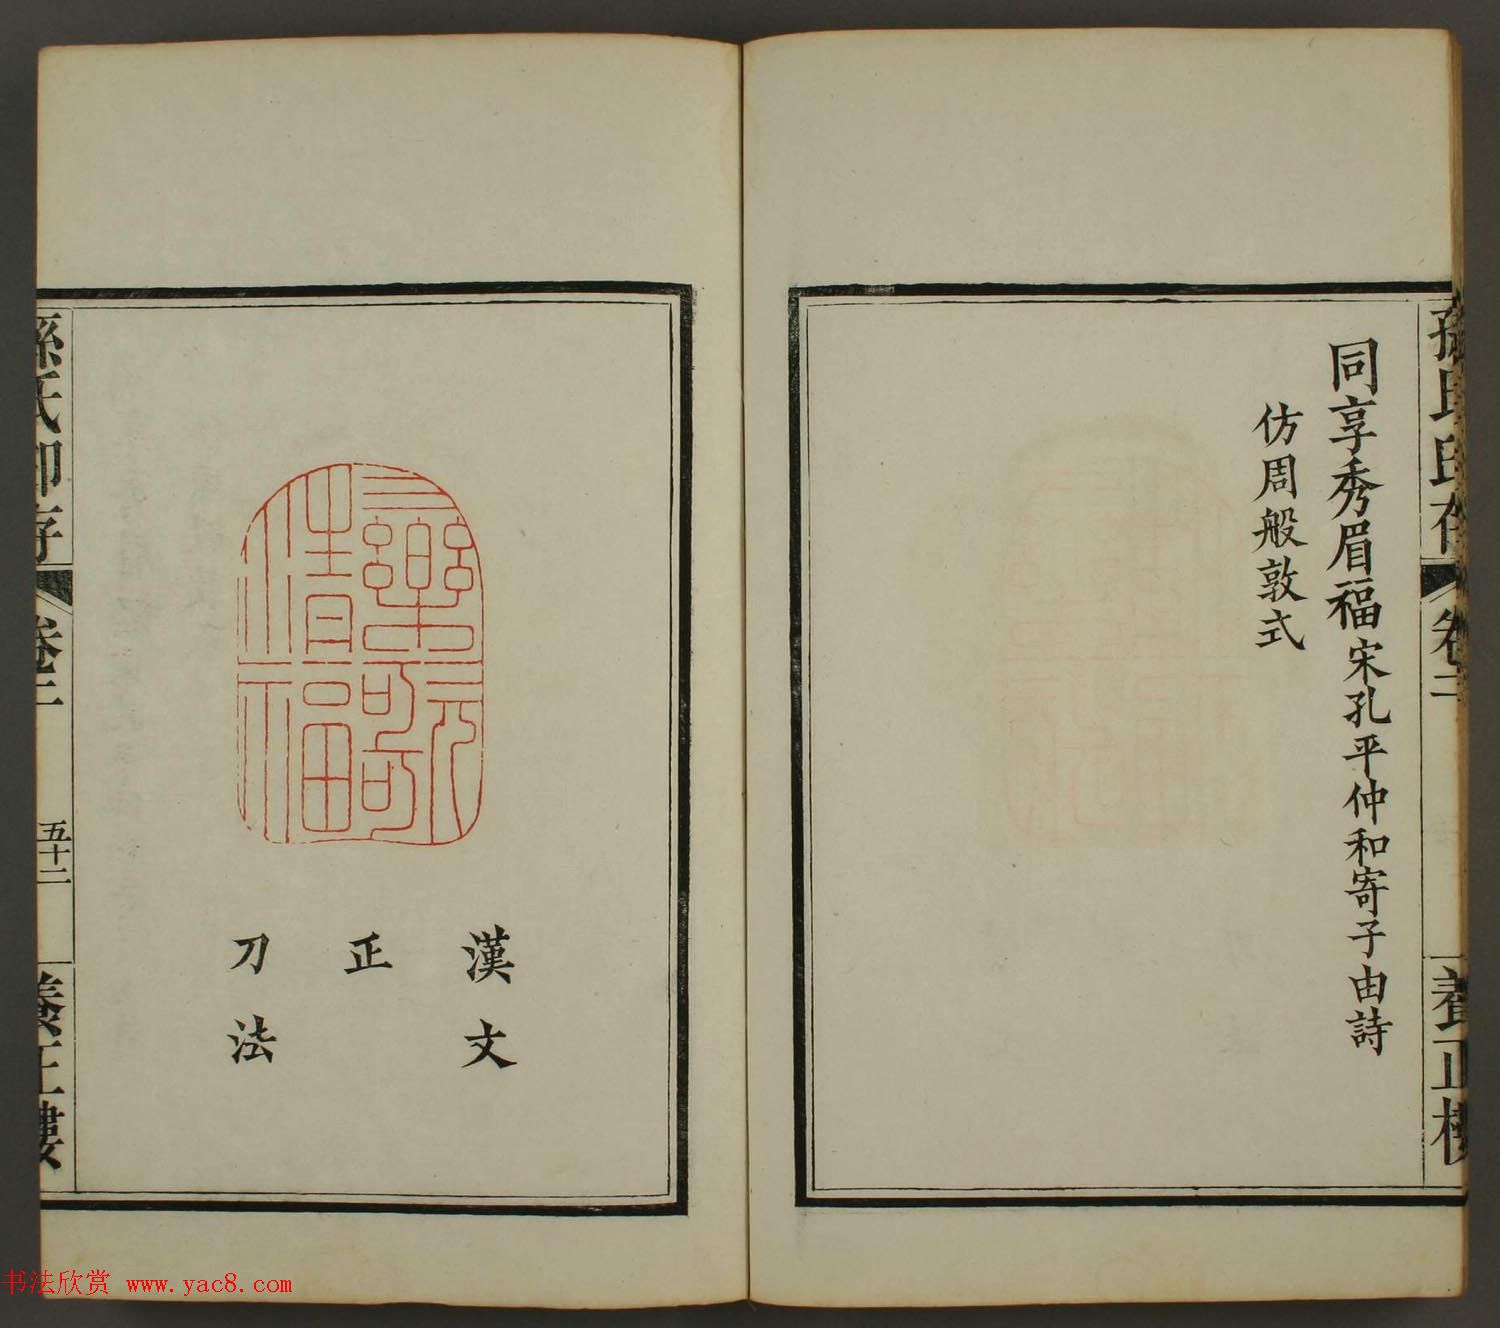 孫氏印存
卷二
養正樓
同享秀眉福宋孔平仲和寄子由詩
仿周般敦式
樂歌
清福
漢文
正
刀法
孫氏印存
卷二
五十二
養正樓
书法欣赏 www.yac8.com